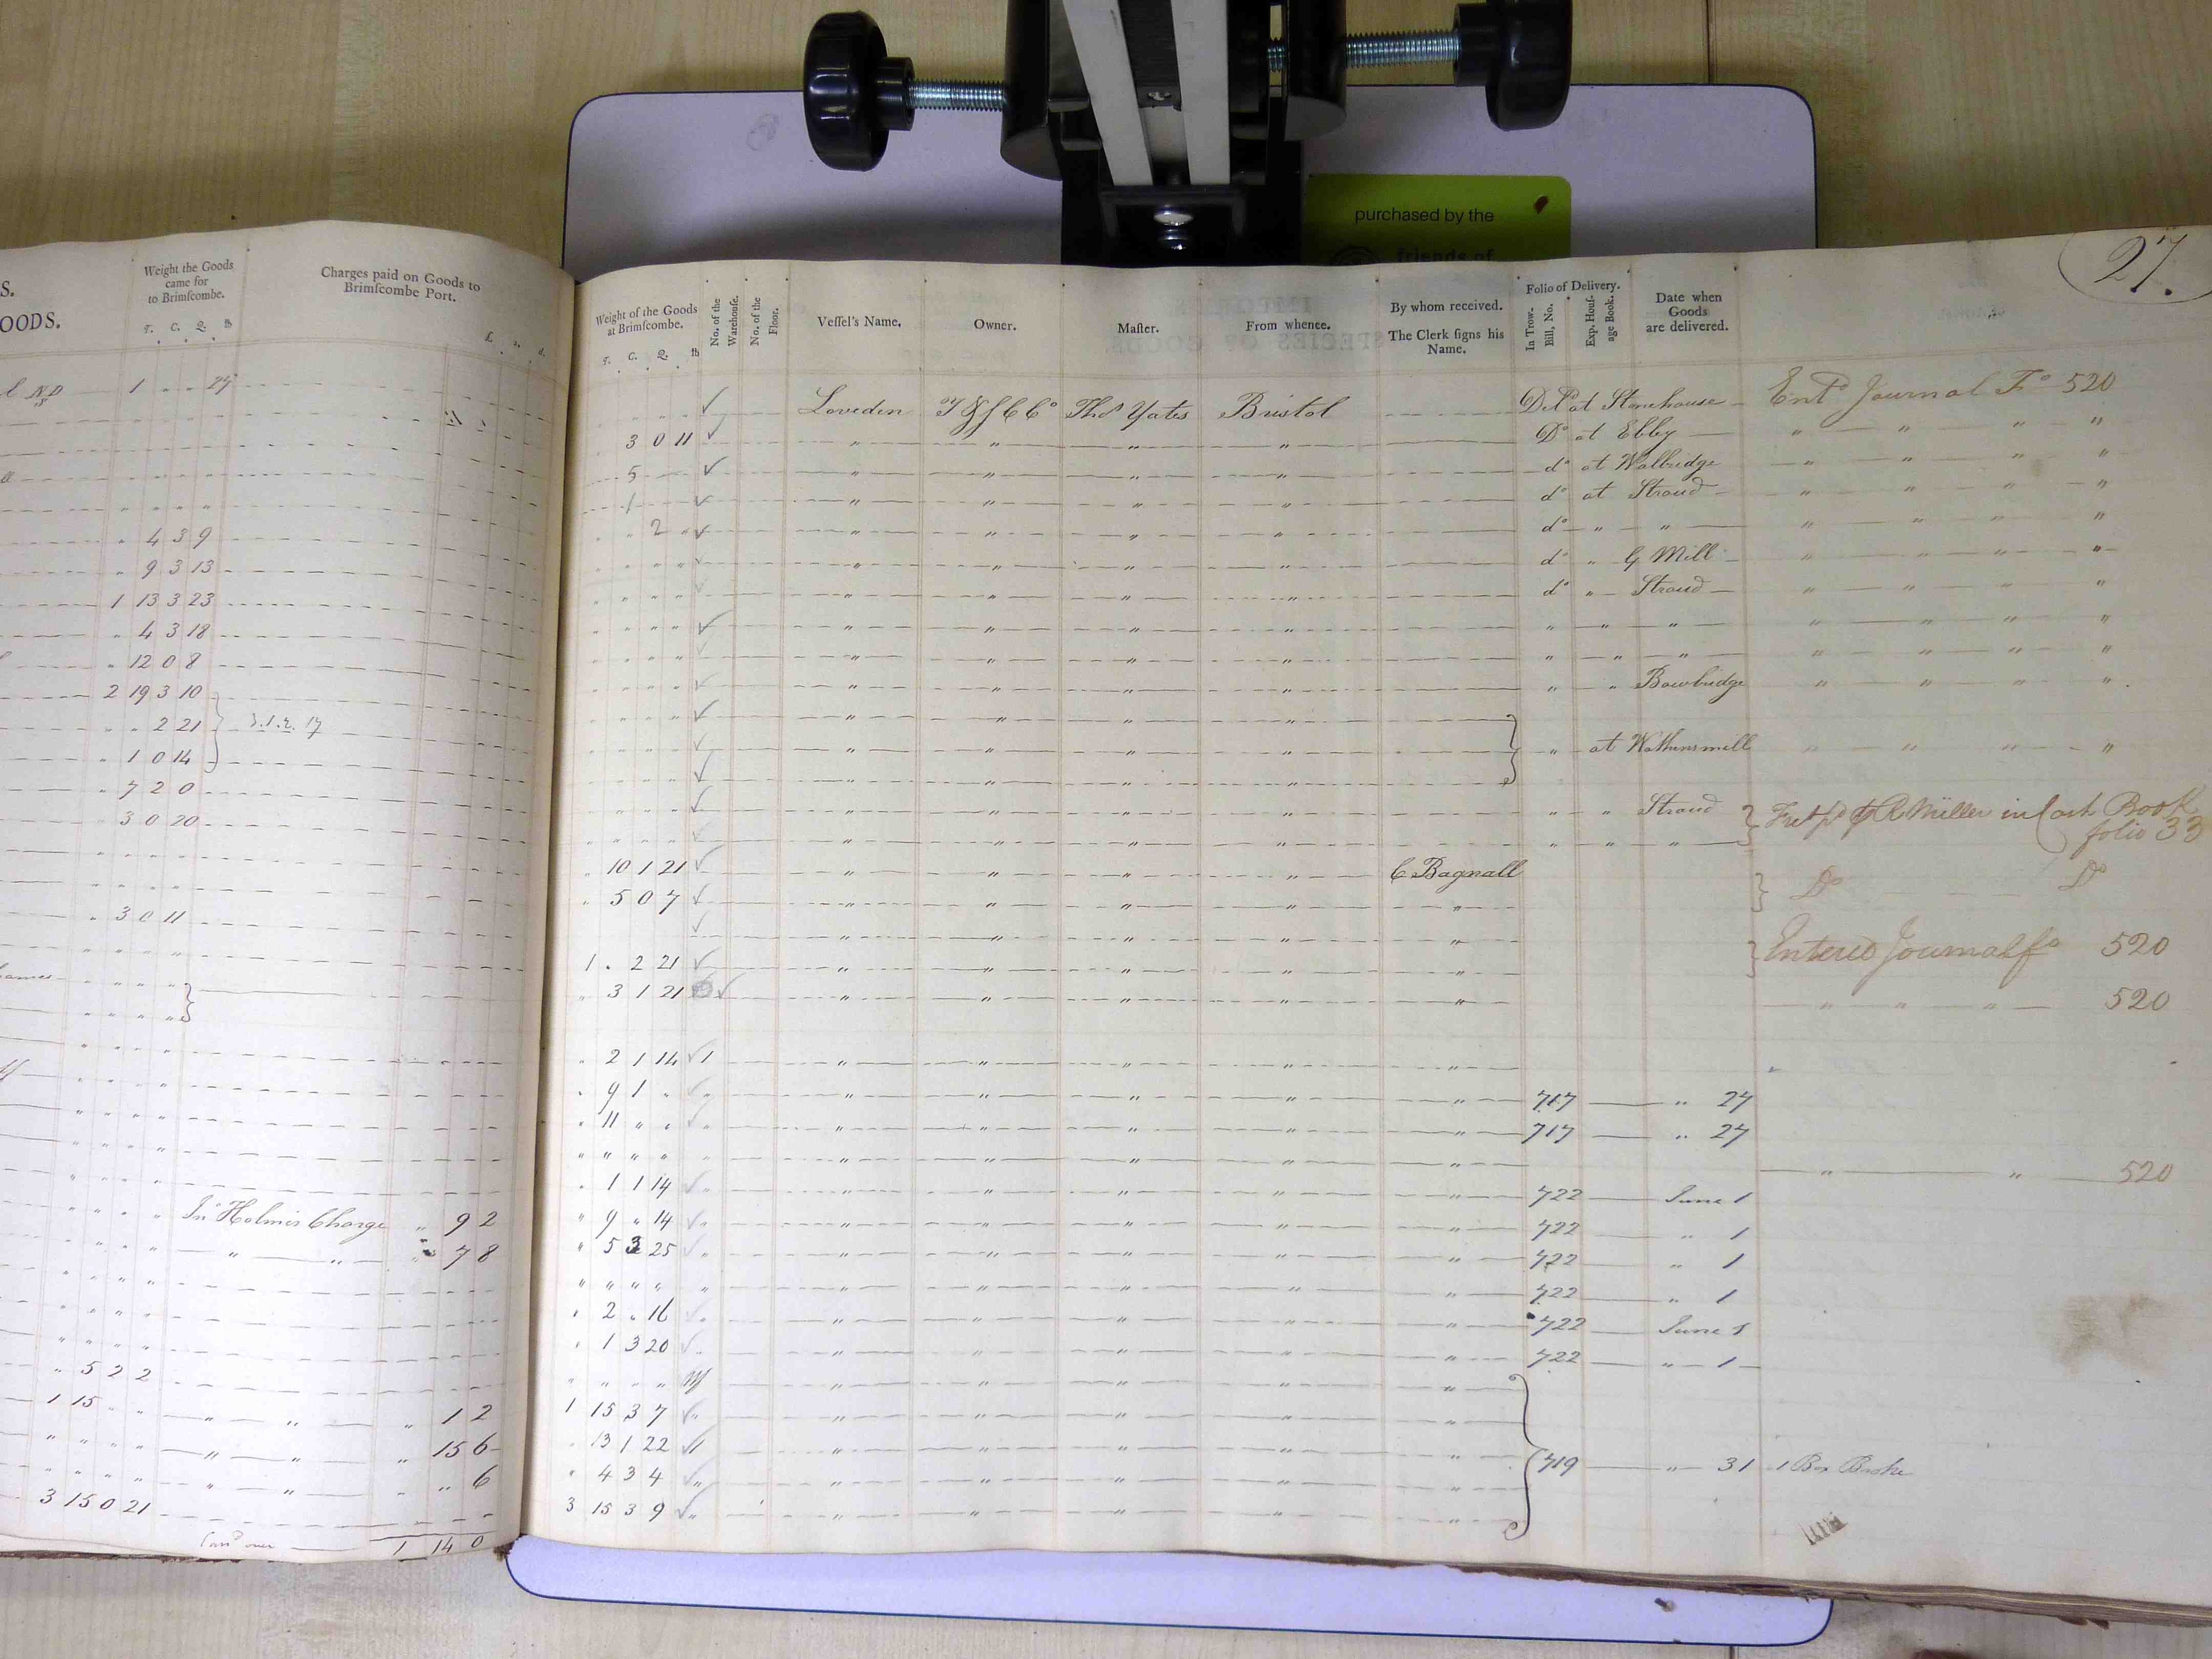 purchased by the
friends of
27.
S.
OODS.
Weight the Goods
came for
to Brimſcombe.
T. C. Q. lb
Charges paid on Goods to
Brimſcombe Port.
£. s. d.
Weight of the Goods
at Brimſcombe.
T. C. Q. lb
No. of the
Warehouſe.
No. of the
Floor.
Veſſel's Name.
Owner.
Maſter.
From whence.
By whom received.
The Clerk ſigns his
Name.
Folio of Delivery.
In Trow.
Bill, No.
Exp. Houſ-
age Book.
Date when
Goods
are delivered.
1 . . 27
4 3 9
9 3 13
1 13 3 23
4 3 18
12 0 8
2 19 3 10
2 21
1 0 14
7 2 0
3 0 20
3 0 11
Jn° Holmis Charge " 9 2
" " 7 8
5 2 2
1 15 " " " " 1 2
" " " 15 6
" " " 6
3 15 0 21
Card over 1 14 0
Loveden Thos Yates Bristol Dld at Stonehouse Entd Journal Fo 520
3 0 11 " " " " Do at Ebley " " " "
5 " " " " do at Walbridge " " " "
1 " " " " do at Stroud " " " "
2 " " " " " do " " " " " "
" " " " do " G Mill " " " "
" " " " do " Stroud " " " "
" " " " " " " " " " "
" " " " " " " " " " "
" " " " " " Bowbridge " " " "
" " " "
" " " " " at Wathensmill " " " "
" " " "
" " " " " " Stroud
in Cash Book
folio 33
" " " " " " "
10 1 21 " " " " C Bagnall
5 0 7 " " " " " Do Do
" " " " "
1 . 2 21 " " " " " Entered Journal fo 520
3 1 21 " " " " " " " " 520
2 1 14 " " " " "
9 1 " " " " " " 717 " 27
11 " " " " " " " 717 " 27
" " " " " " " " "
" " 520
1 1 14 " " " " " 722 June 1
9 " 14 " " " " " 722 " 1
5 3 25 " " " " " 722 " 1
" " " " " " " " " 722 " 1
2 " 16 " " " " " 722 June 1
1 3 20 " " " " " 722 " 1
" " " " " " " " "
1 15 3 7 " " " " "
13 1 22 " " " " "
4 3 4 " " " " " 719 " 31 1 Box Broke
3 15 3 9 " " " " "